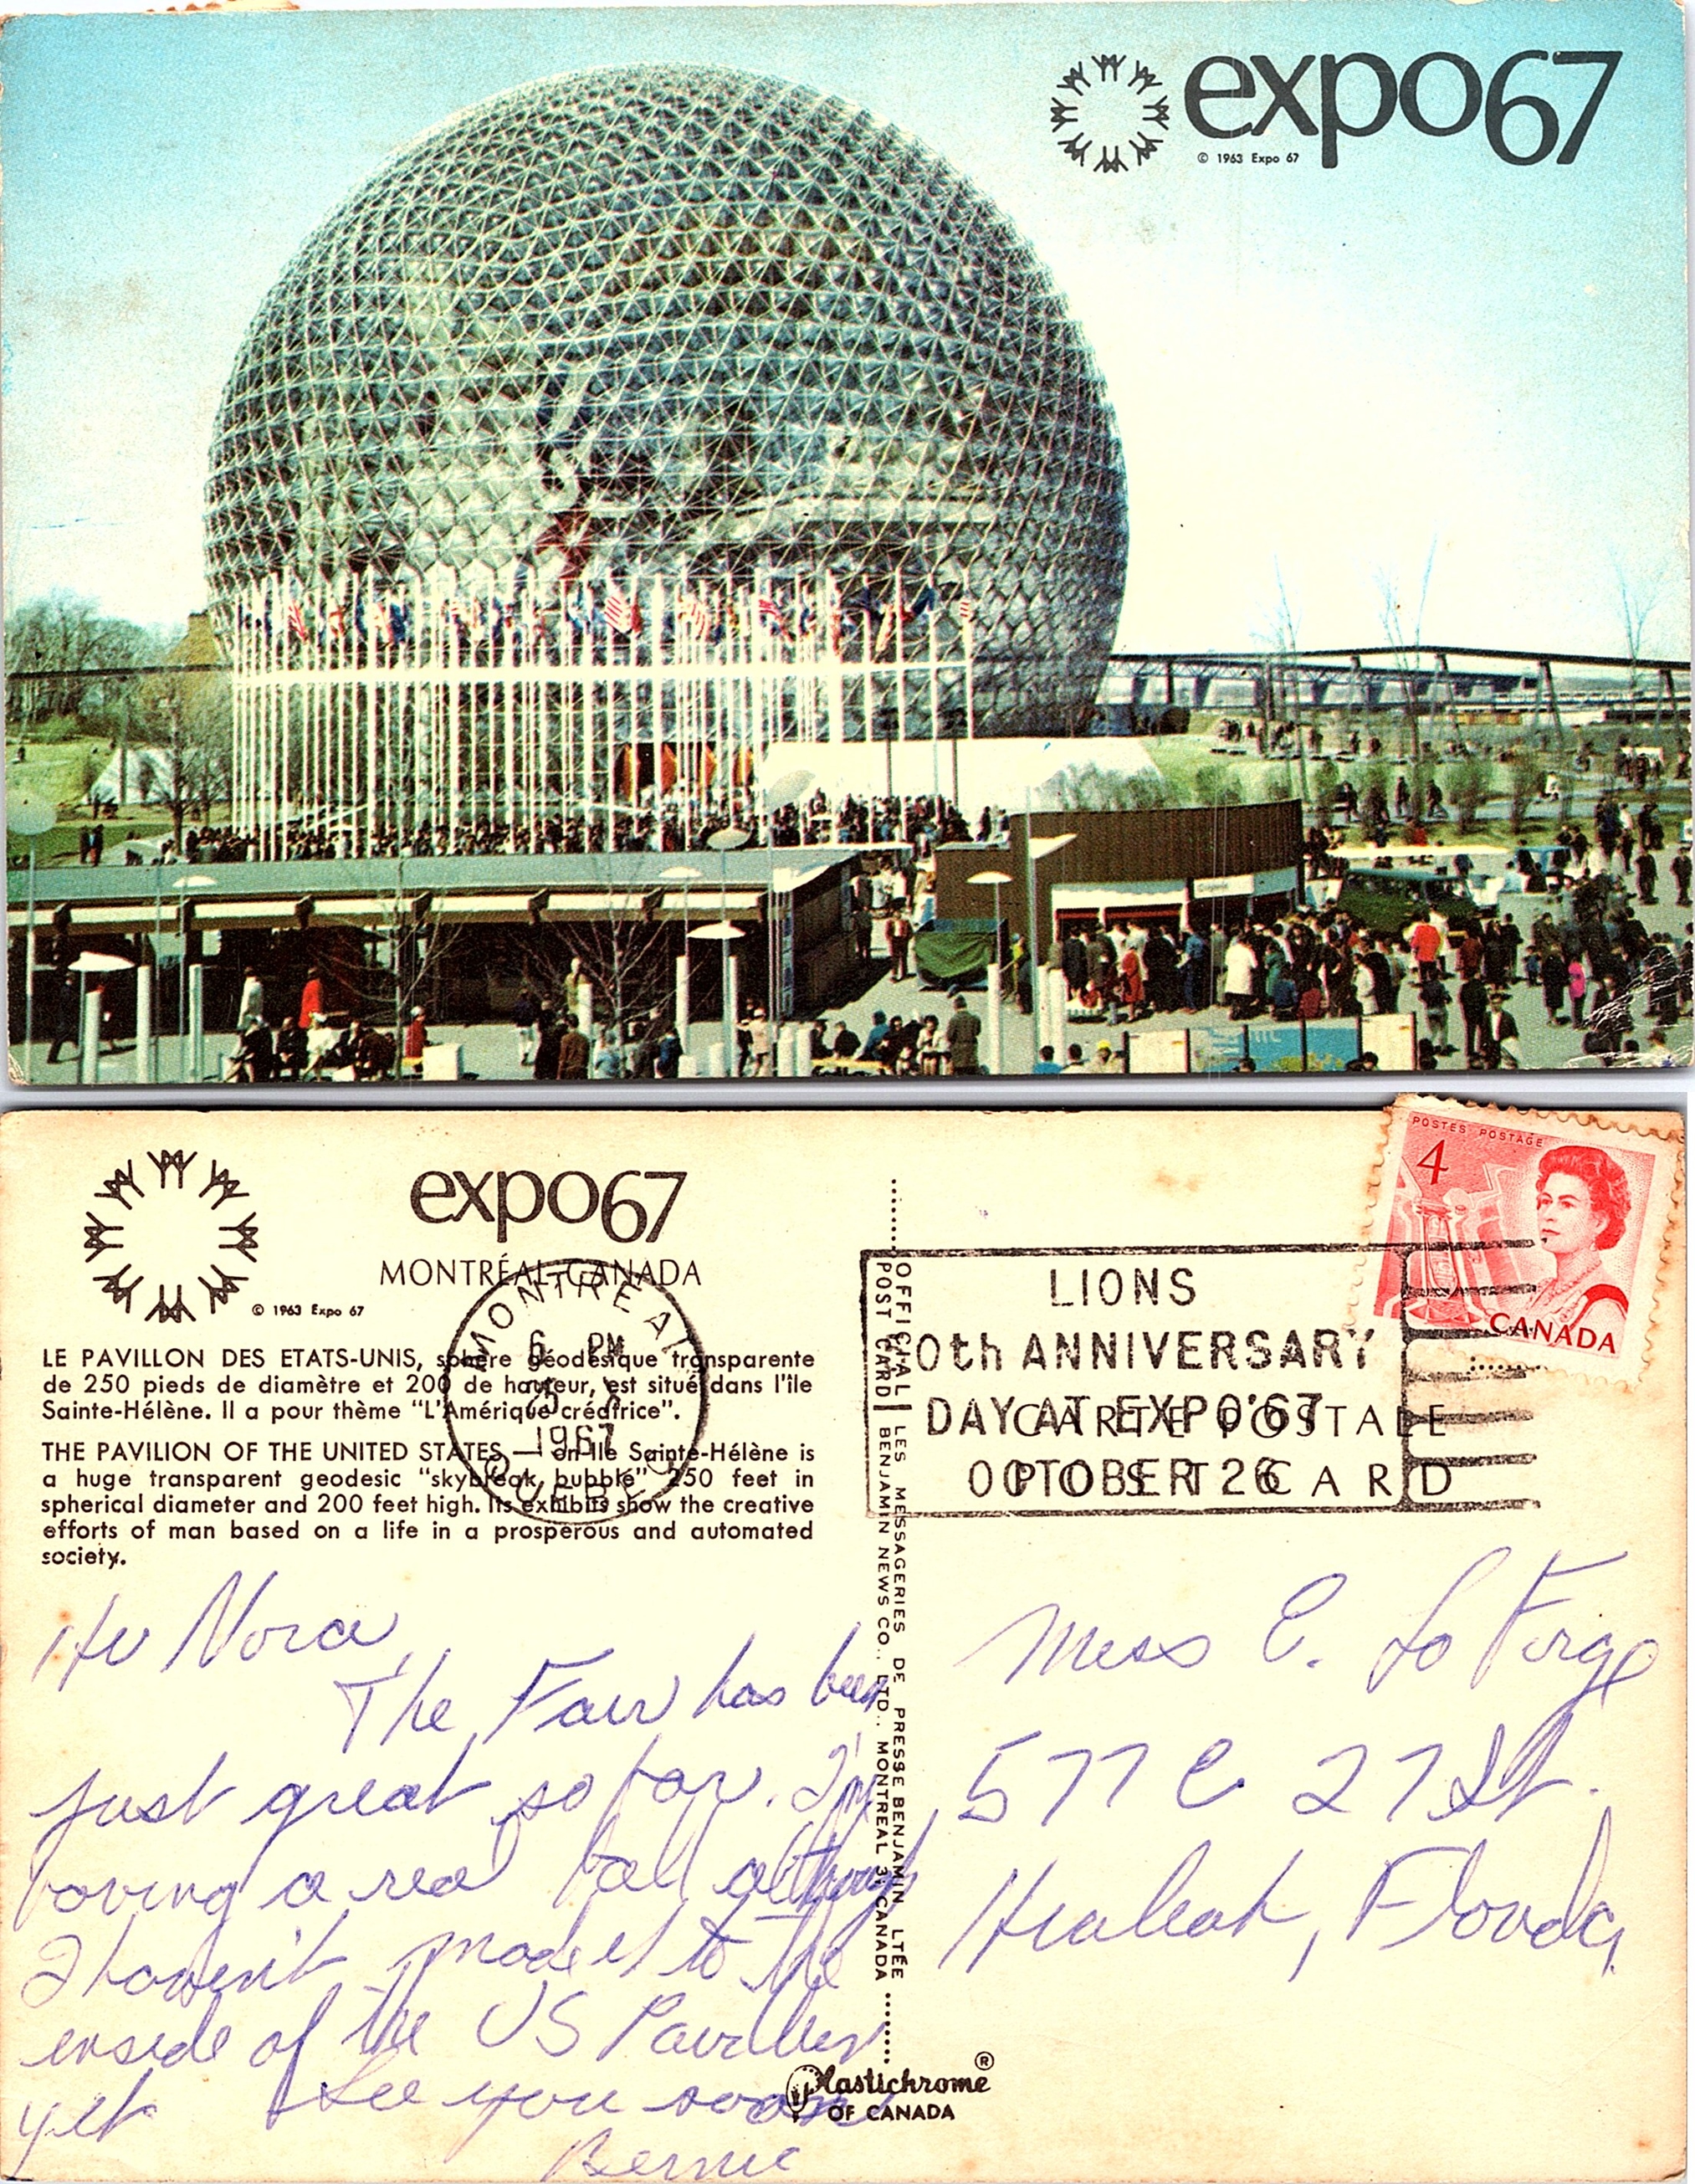 expo67
© 1963 Expo 67
expo67
MONTRÉAL-CANADA
© 1963 Expo 67
LE PAVILLON DES ETATS-UNIS, sphère géodésique transparente
de 250 pieds de diamètre et 200 de hauteur, est situé dans l'île
Sainte-Hélène. Il a pour thème "L'Amérique créatrice".
THE PAVILION OF THE UNITED STATES on Ile Sainte-Hélène is
a huge transparent geodesic "skybreak bubble" 250 feet in
spherical diameter and 200 feet high. Its exhibits show the creative
efforts of man based on a life in a prosperous and automated
society.
MONTREAL
6 PM
1967
Hi Nora,
The Fair has been
just great so far. I'm
having a real ball although
I haven't made it to the
inside of the US Pavilion
yet See you soon
Bernie
OFFICIAL
POST CARD
LES MESSAGERIES DE PRESSE BENJAMIN LTÉE
BENJAMIN NEWS CO., LTD., MONTREAL 3, CANADA
Plastichrome ®
OF CANADA
POSTES POSTAGE
4
CANADA
LIONS
0th ANNIVERSARY
DAY AT EXPO'67
OCTOBER 26
CARTE POSTALE
POST CARD
Miss E. La Forge
577 E 27 St.
Hialeah, Florida